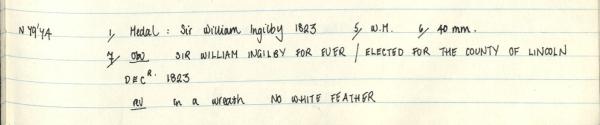 N Y9'44 1, Medal : Sir William Ingilby 1823 5, W.M. 6, 40 mm.
7, Obv SIR WILLIAM INGILBY FOR EVER / ELECTED FOR THE COUNTY OF LINCOLN
DEC R. 1823
rev in a wreath NO WHITE FEATHER